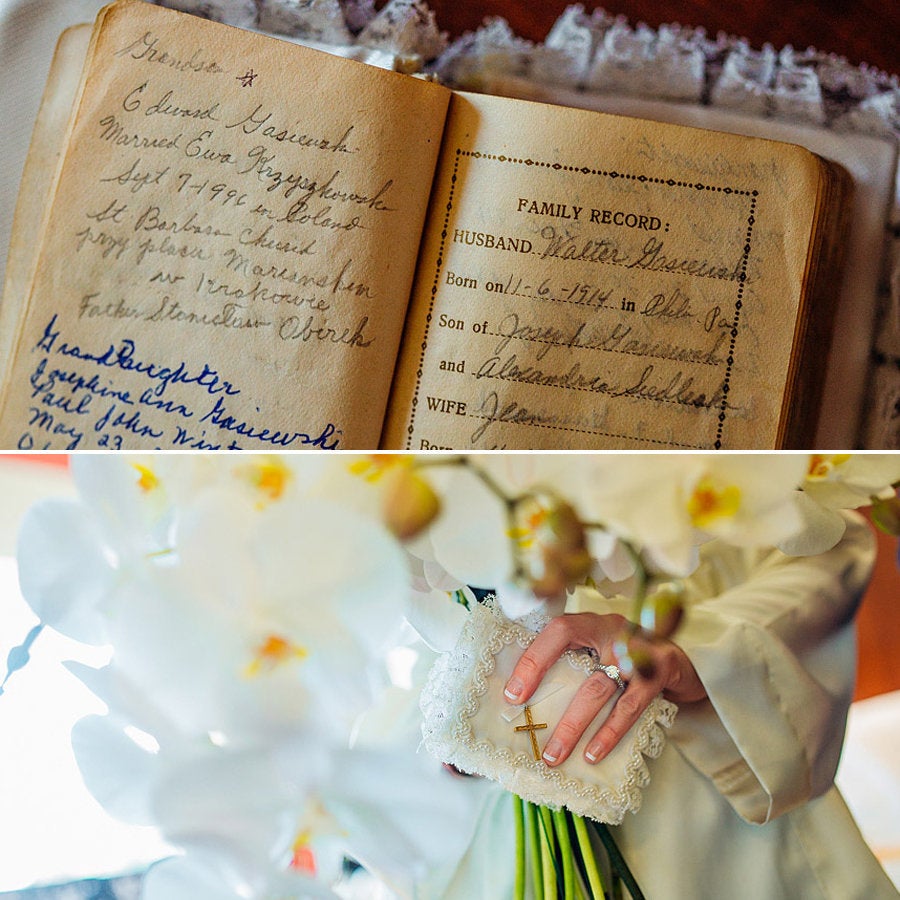 Grandson *
Edward Gasiewski
Married Ewa Krzyszkowska
Sept 7-1996 in Poland
St Barbara Church
przy placu Mariankim
w Krakowie
Father Stanislaw Obirek
GrandDaughter
Josephine Ann Gasiewski
Paul John
May 23
FAMILY RECORD:
HUSBAND Walter Gasiewski
Born on 11-6-1914 in Phila. Pa
Son of Joseph Gasiewski
and Alexandria
WIFE
Born